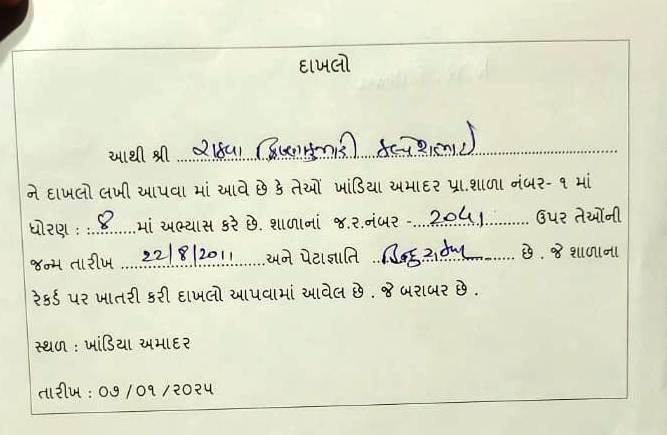 દાખલો
આથી શ્રી રાઠવા ક્રિષ્નાકુમારી કલ્પેશભાઈ
ને દાખલો લખી આપવા માં આવે છે કે તેઓં ખાંડિયા અમાદર પ્રા.શાળા નંબર- ૧ માં
ધોરણ : :.8......માં અભ્યાસ કરે છે. શાળાનાં જ.ર.નંબર -...2041......... ઉપર તેઓંની
જન્મ તારીખ ...22/8/2011......અને પેટાજ્ઞાતિ ..હિન્દુ રાઠવા...... છે . જે શાળાના
રેકર્ડ પર ખાતરી કરી દાખલો આપવામાં આવેલ છે . જે બરાબર છે .
સ્થળ : ખાંડિયા અમાદર
તારીખ : ૦૭ / ૦૧ / ૨૦૨૫